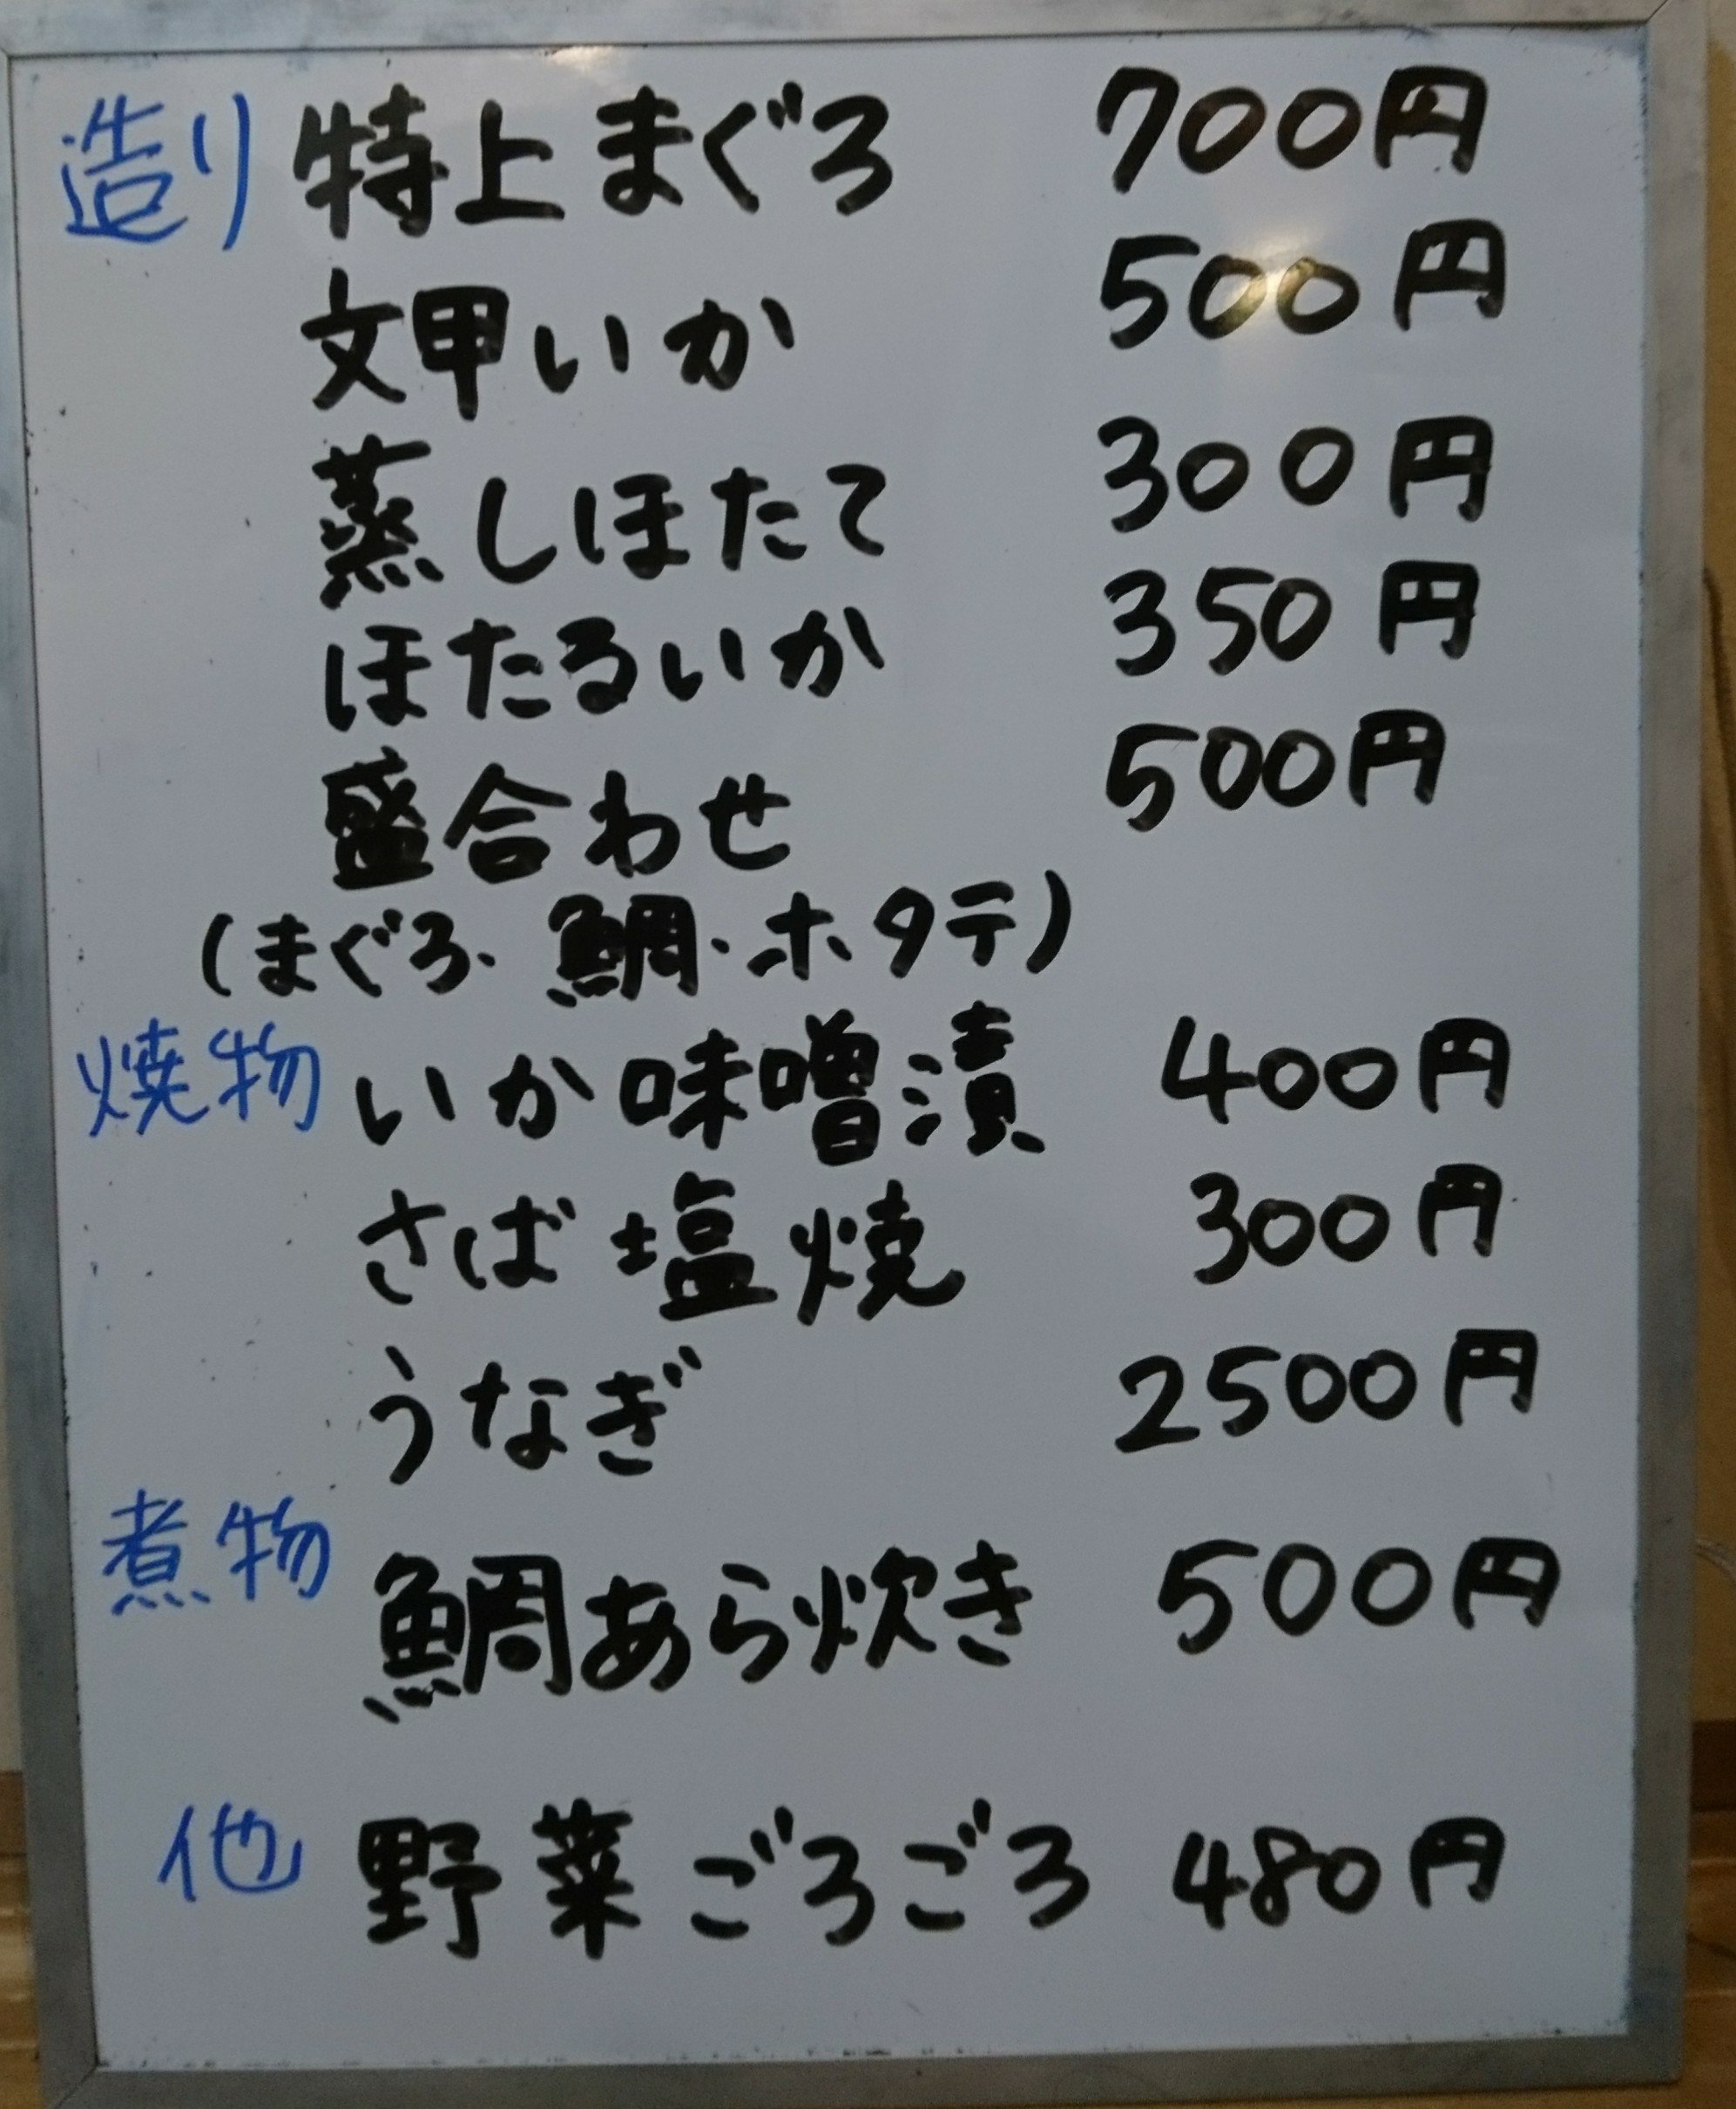 造り 特上まぐろ 700円
文甲いか 500円
蒸しほたて 300円
ほたるいか 350円
盛合わせ 500円
(まぐろ・鯛・ホタテ)
焼物 いか味噌漬 400円
さば塩焼 300円
うなぎ 2500円
煮物 鯛あら炊き 500円
他 野菜ごろごろ 480円